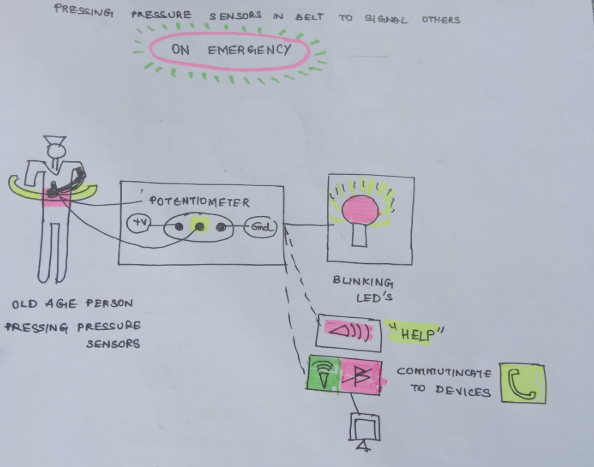 PRESSING PRESSURE SENSORS IN BELT TO SIGNAL OTHERS
ON EMERGENCY
POTENTIOMETER
+V
Gnd
BLINKING
LED'S
OLD AGE PERSON
PRESSING PRESSURE
SENSORS
"HELP"
COMMUTINCATE
TO DEVICES